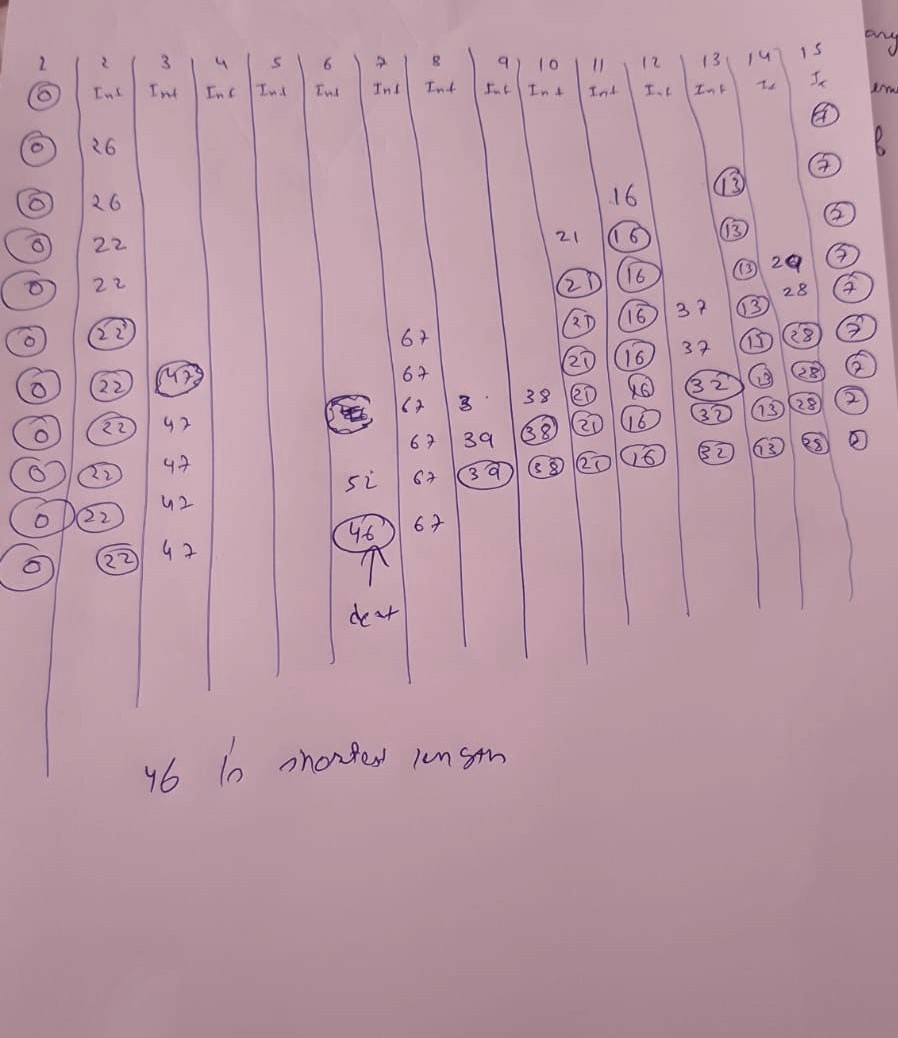 1 2 3 4 5 6 7 8 9 10 11 12 13 14 15
0 Inf Inf Inf Inf Inf Inf Inf Inf Inf Inf Inf Inf
7
0 26 7
0 26 16 13 7
0 22 21 16 13 7
0 22 21 16 13 29 7
0 22 67 21 16 37 13 28 7
0 22 47 67 21 16 37 13 28 7
0 22 47 67 38 21 16 32 13 28 7
0 22 47 67 39 38 21 16 32 13 28 7
0 22 47 52 67 39 38 21 16 32 13 28 7
0 22 47 46 67
46 is shortest length